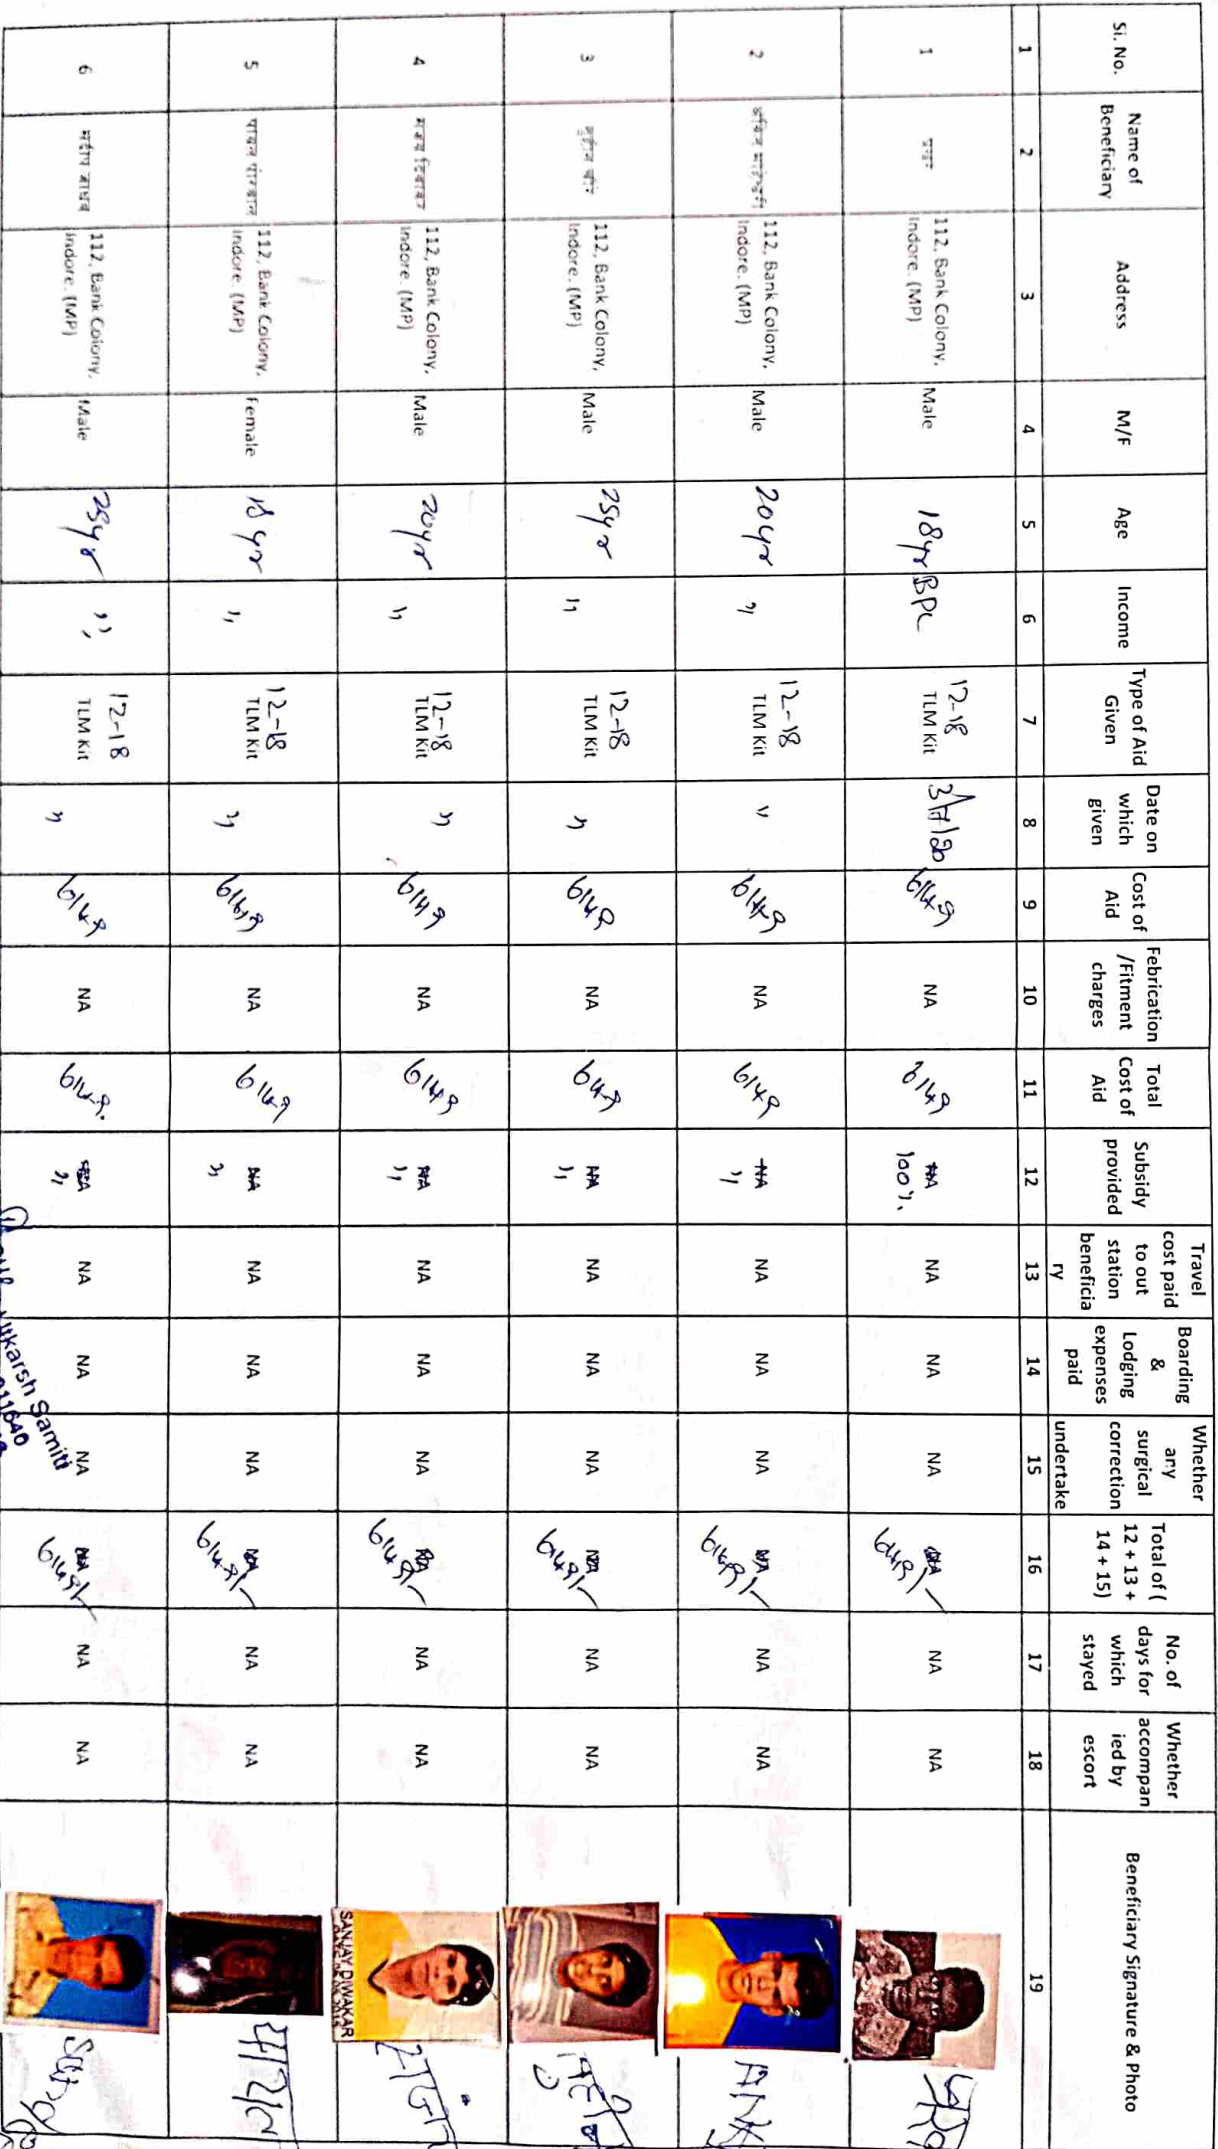 Sl. No.
Name of
Beneficiary
Address
M/F
Age
Income
Type of Aid
Given
Date on
which
given
Cost of
Aid
Febrication
/Fitment
charges
Total
Cost of
Aid
Subsidy
provided
Travel
cost paid
to out
station
beneficia
ry
Boarding
&
Lodging
expenses
paid
Whether
any
surgical
correction
undertake
Total of (
12 + 13 +
14 + 15)
No. of
days for
which
stayed
Whether
accompan
ied by
escort
Beneficiary Signature & Photo
1 2 3 4 5 6 7 8 9 10 11 12 13 14 15 16 17 18 19
1
112, Bank Colony,
Indore. (MP)
Male
18yr
BPL
12-18
TLM Kit
3/7/20
6149
NA
6149
NA
100%.
NA
NA
NA
6149/-
NA
NA
2
112, Bank Colony,
Indore. (MP)
Male
20yr
"
12-18
TLM Kit
"
6149
NA
6149
NA
"
NA
NA
NA
NA
6149/-
NA
NA
3
112, Bank Colony,
Indore. (MP)
Male
25yr
"
12-18
TLM Kit
"
6149
NA
6149
NA
"
NA
NA
NA
NA
6149/-
NA
NA
4
112, Bank Colony,
Indore. (MP)
Male
20yr
"
12-18
TLM Kit
"
6149
NA
6149
NA
"
NA
NA
NA
NA
6149/-
NA
NA
SANJAY DIWAKAR
5
112, Bank Colony,
Indore. (MP)
Female
18yr
"
12-18
TLM Kit
"
6149
NA
6149
NA
"
NA
NA
NA
NA
6149/-
NA
NA
6
112, Bank Colony,
Indore. (MP)
Male
25yr
"
12-18
TLM Kit
"
6149
NA
6149.
NA
"
NA
NA
NA
NA
6149/-
NA
NA
Utkarsh Samiti
11640